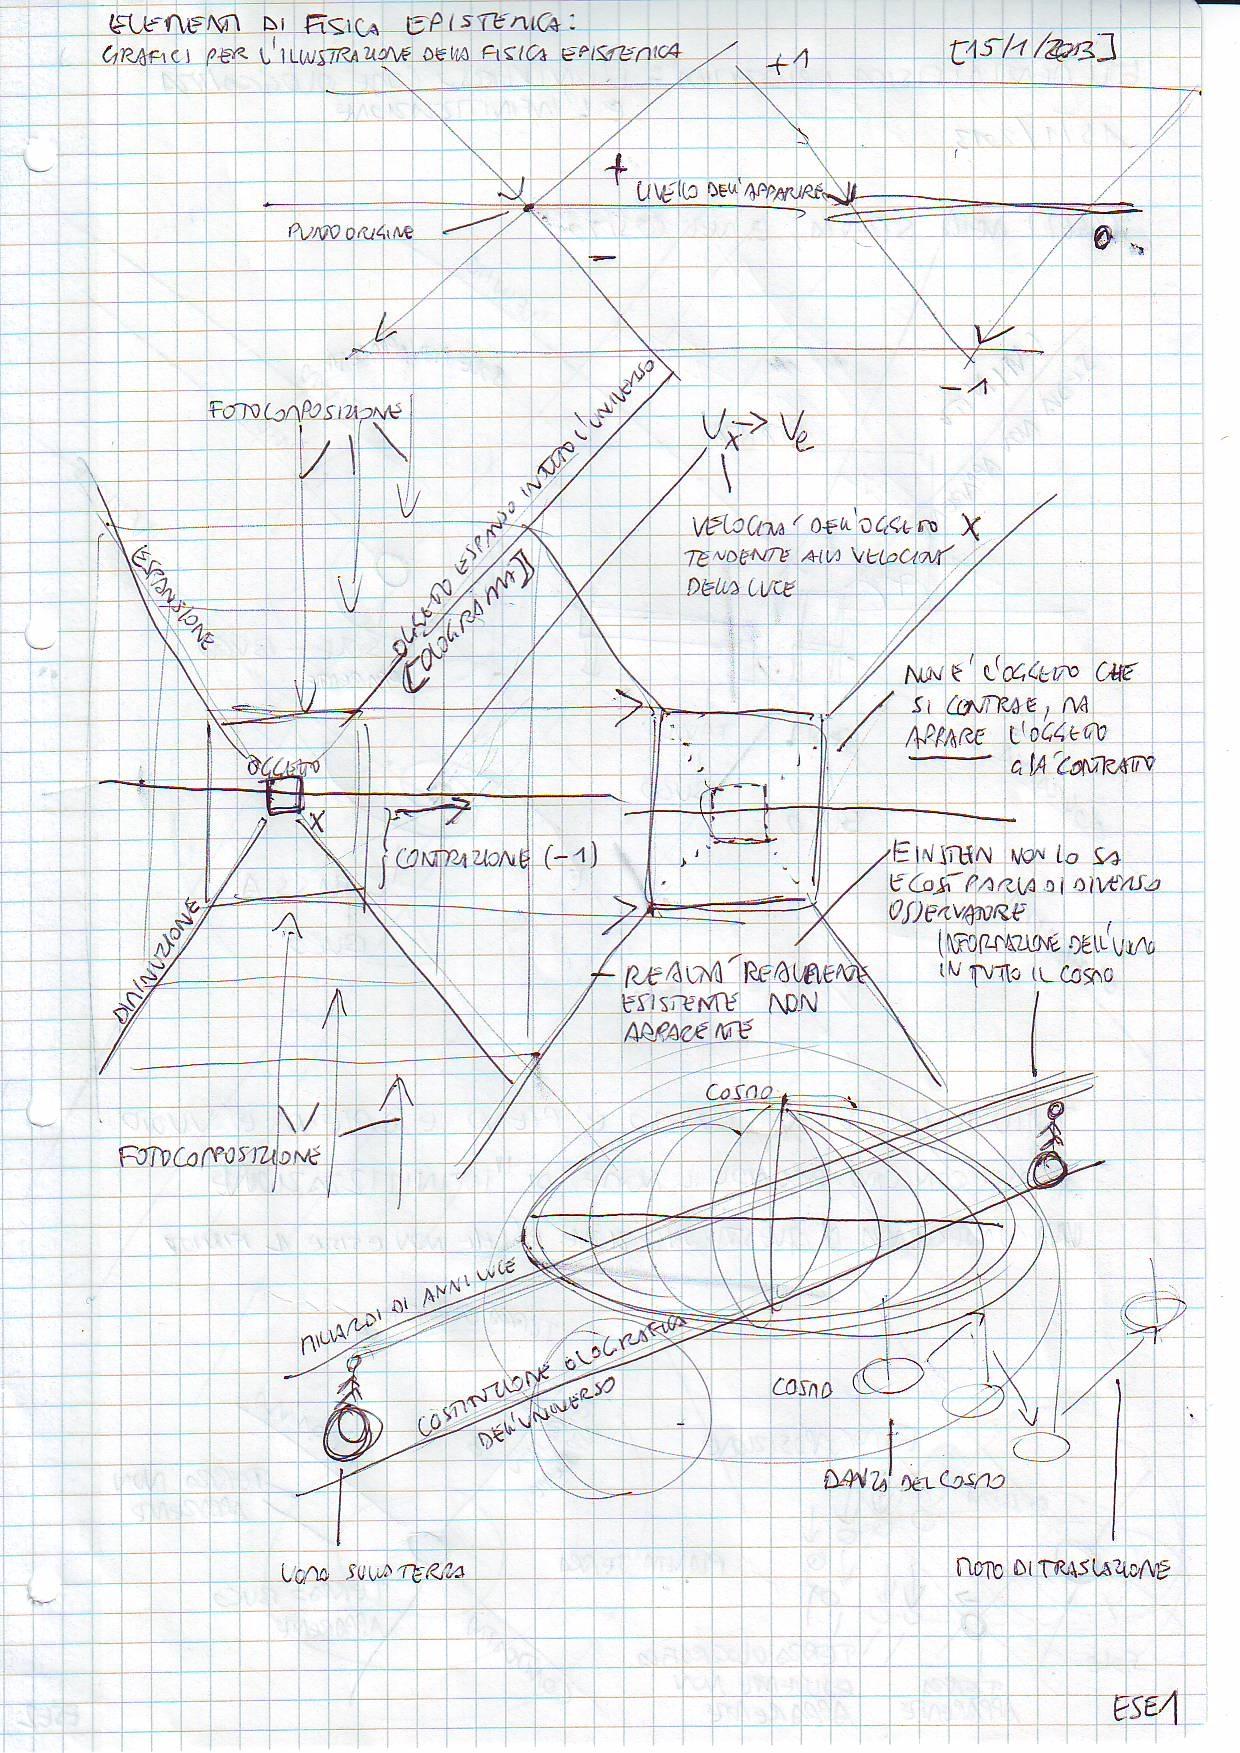 ELEMENTI DI FISICA EPISTEMICA:
GRAFICI PER L'ILLUSTRAZIONE DELLA FISICA EPISTEMICA
[15/1/2013]
+1
+
LIVELLO DELL'APPARIRE
PUNTO ORIGINE
0
-
-1
FOTOCOMPOSIZIONE
OGGETTO ESPANSO IN TUTTO L'UNIVERSO
[OLOGRAMMA]
Vx → Ve
VELOCITA' DELL'OGGETTO X
TENDENTE ALLA VELOCITÀ
DELLA LUCE
ESPANSIONE
NON E' L'OGGETTO CHE
SI CONTRAE, MA
APPARE L'OGGETTO
GIA' CONTRATTO
OGGETTO
X
CONTRAZIONE (-1)
EINSTEIN NON LO SA
E COSÌ PARLA DI DIVERSO
OSSERVATORE
DIMINUZIONE
INFORMAZIONE DELL'UOMO
IN TUTTO IL COSMO
REALTA' REALMENTE
ESISTENTE NON
APPARENTE
COSMO
FOTOCOMPOSIZIONE
MILIARDI DI ANNI LUCE
COSTITUZIONE OLOGRAFICA
DELL'UNIVERSO
COSMO
DANZA DEL COSMO
UOMO SULLA TERRA
MOTO DI TRASLAZIONE
ESE1